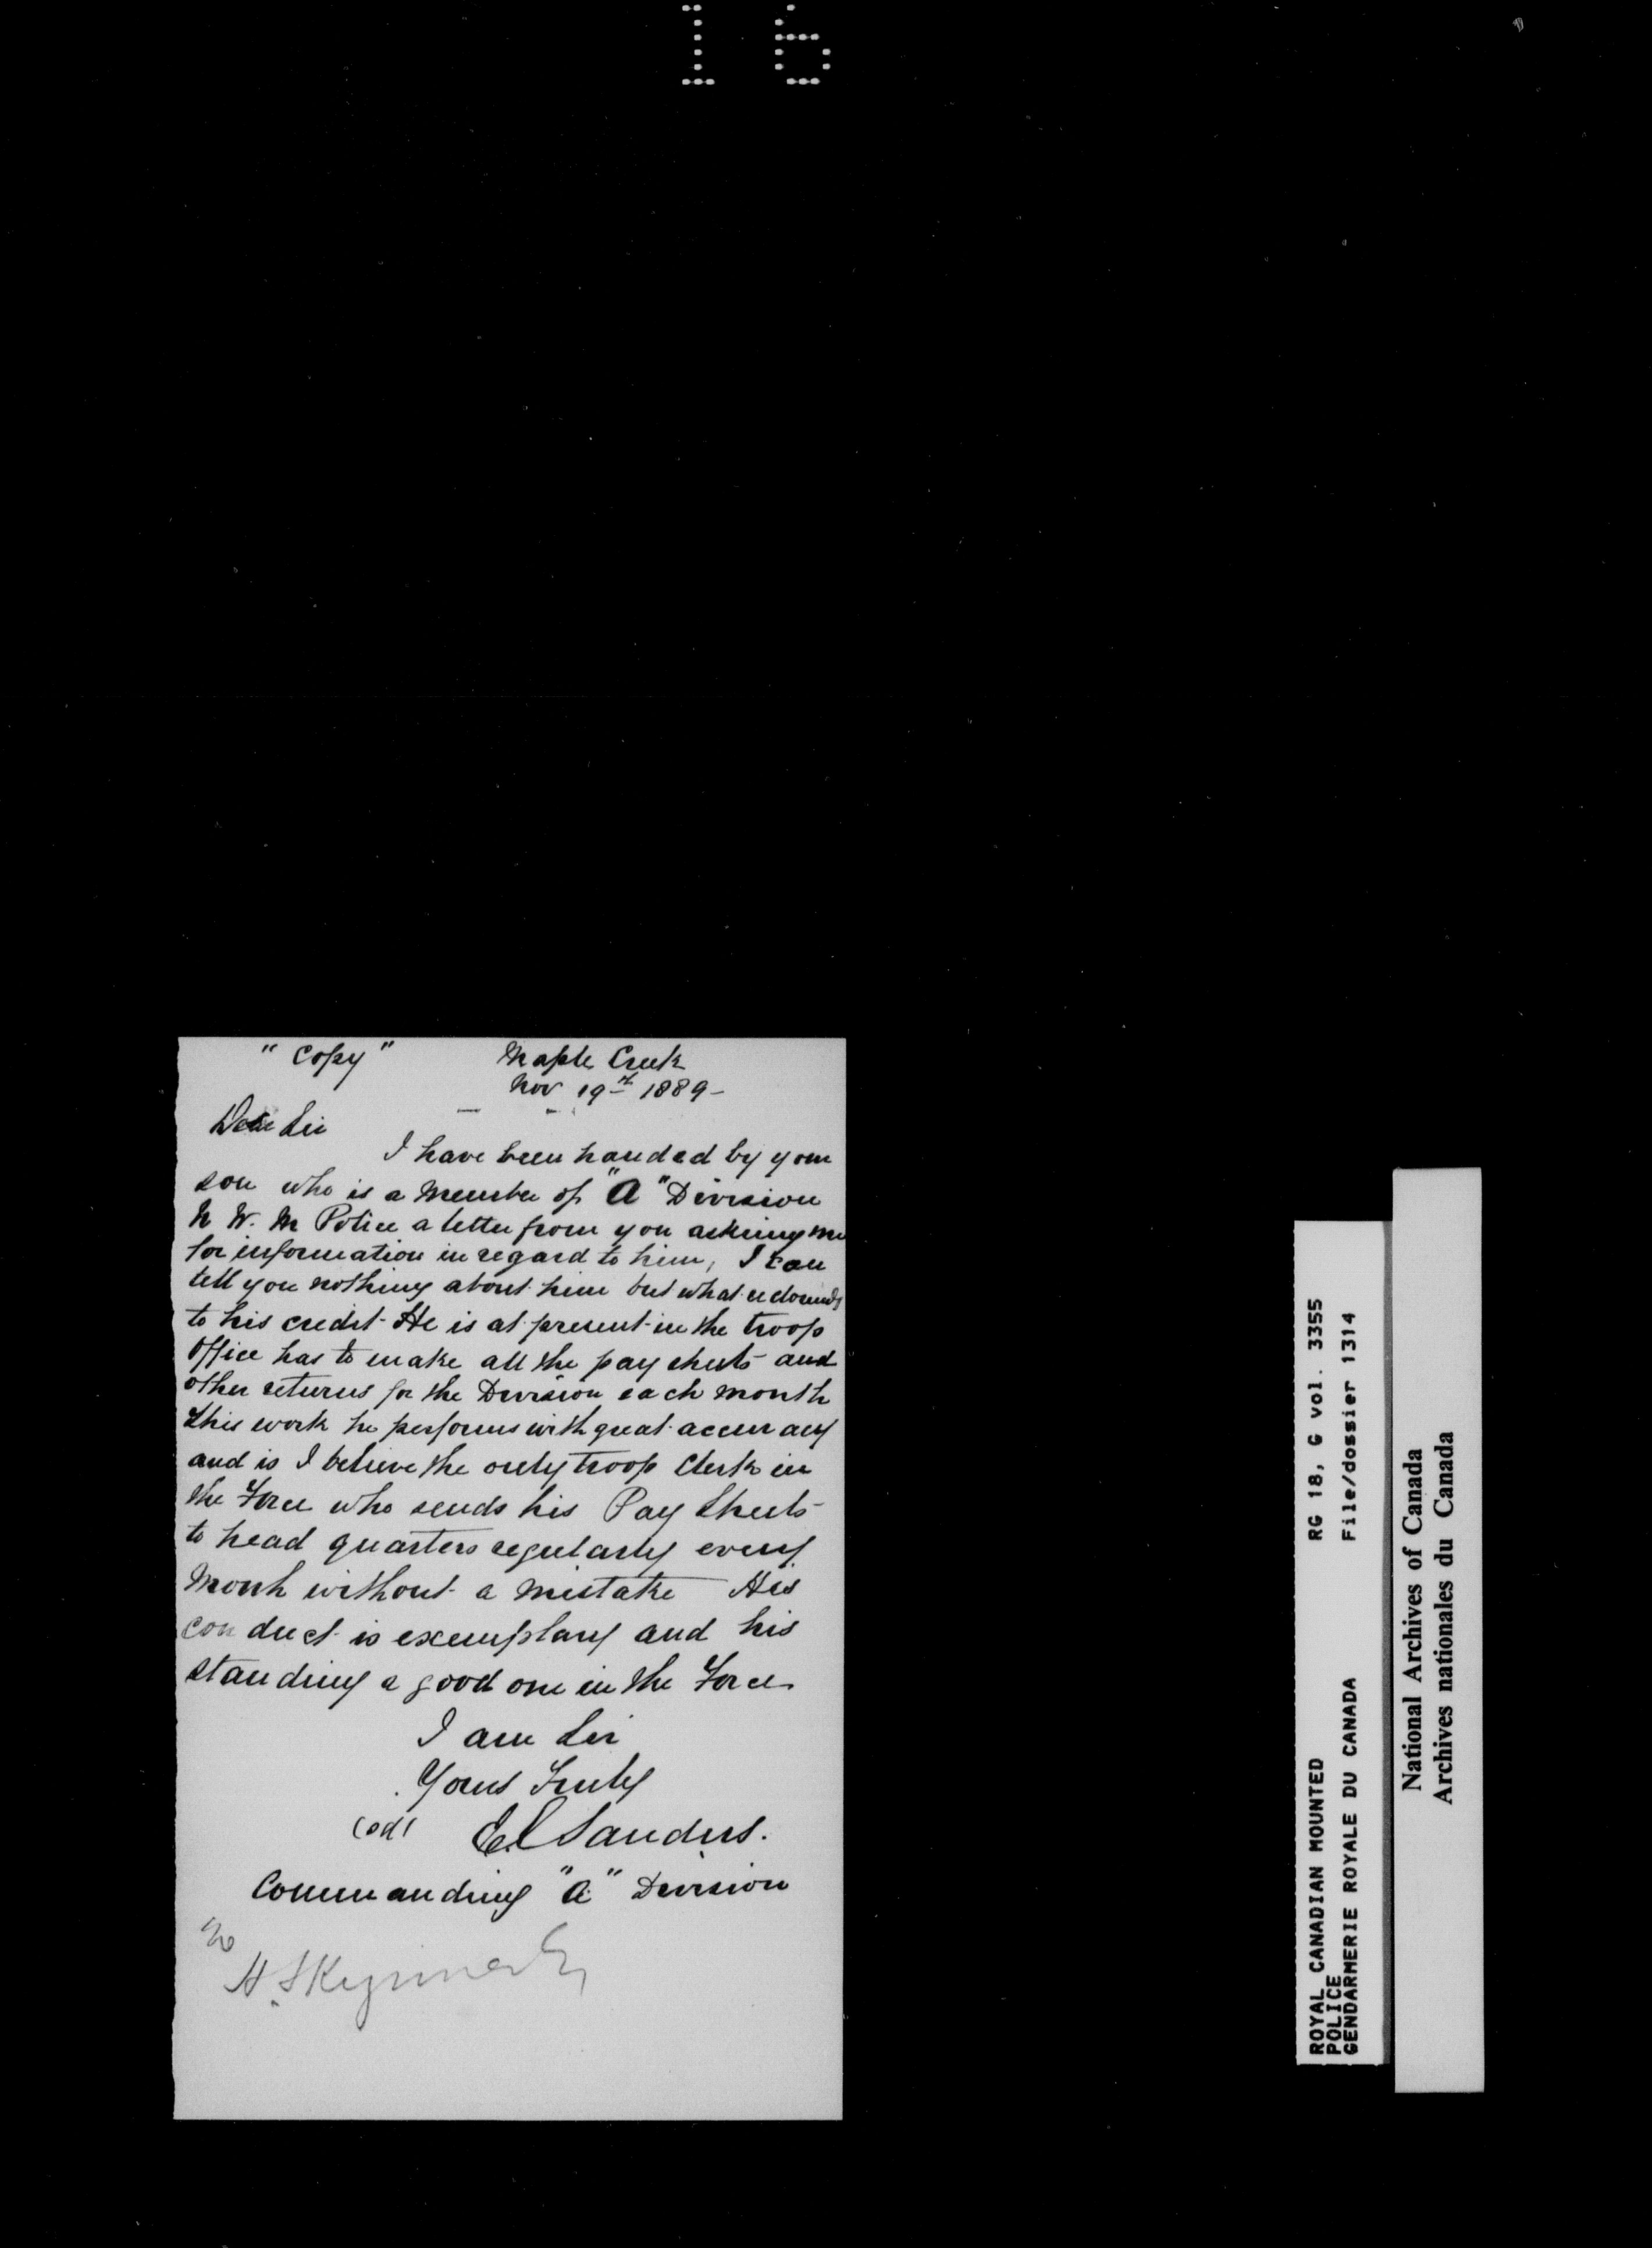 16
"Copy" Maple Creek
Nov 19th 1889-
Dear Sir
I have been handed by your
son who is a Member of "A" Division
N. W. M Police a letter from you asking me
for information in regard to him, I can
tell you nothing about him but what redounds
to his credit He is at present in the troop
Office has to make all the pay sheets and
other returns for the Division each month
This work he performs with great accuracy
and is I believe the only troop Clerk in
the Force who sends his Pay Sheets
to head quarters regularly every
Month without a mistake His
conduct is exemplary and his
standing a good one in the Force
I am Sir
Yours Truly
(sd)
Sanders.
Commanding "A" Division
To
ROYAL CANADIAN MOUNTED RG 18, G vol. 3355
POLICE
GENDARMERIE ROYALE DU CANADA File/dossier 1314
National Archives of Canada
Archives nationales du Canada